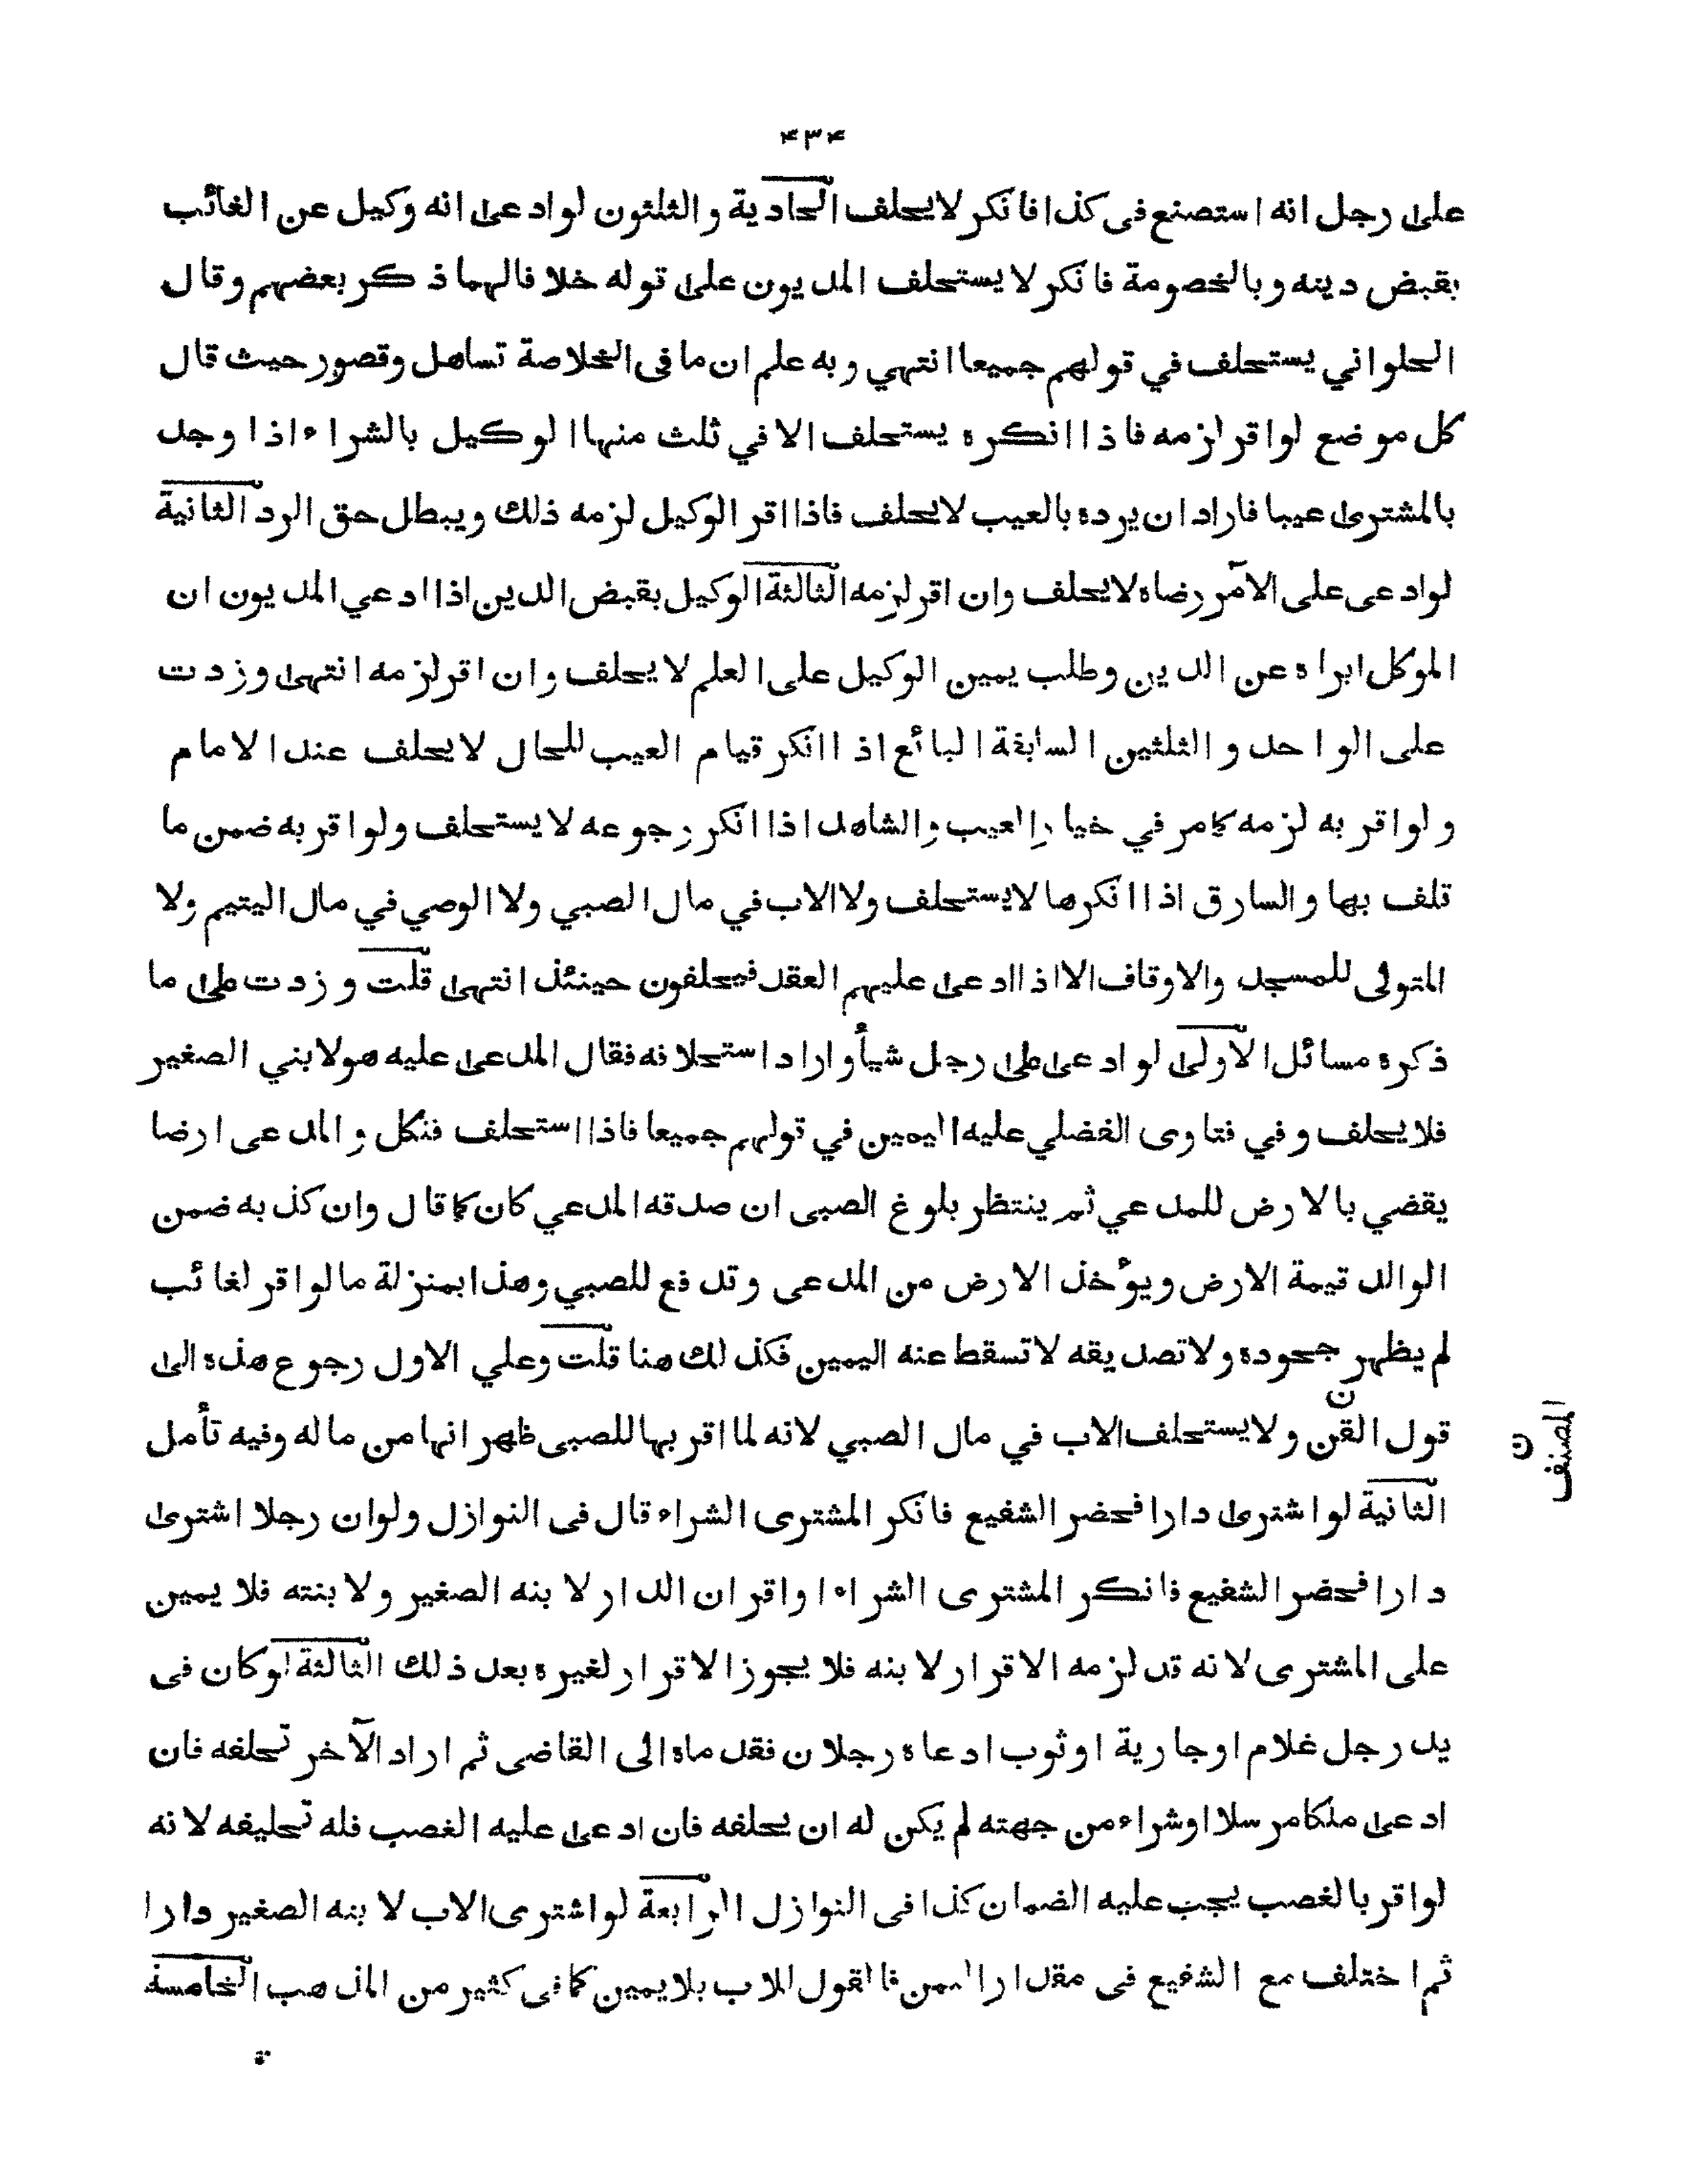 ۴۳۴
على رجل انه استصنع فى كذا فانكر لا يحلف الحادية والثلثون لو ادعى انه وكيل عن الغائب
بقبض دينه وبالخصومة فانكر لا يستحلف المديون على توله خلافالهما ذكر بعضهم وقال
الحلواني يستحلف في قولهم جميعا انتهي وبه علم ان ما فى الخلاصة تساهل وقصور حيث قال
كل موضع لو اقر لزمه فاذا انكره يستحلف الا في ثلث منها الوكيل بالشراء اذا وجد
بالمشترى عيبا فاراد ان يرده بالعيب لا يحلف فاذا اقر الوكيل لزمه ذلك ويبطل حق الرد الثانية
لو ادعى على الآمر رضاه لا يحلف وان اقر لزمه الثالثة الوكيل بقبض الدين اذا ادعي المديون ان
الموكل ابراه عن الدين وطلب يمين الوكيل على العلم لا يحلف وان اقر لزمه انتهى وزدت
على الواحد والثلثين السابقة البائع اذا انكر قيام العيب للحال لا يحلف عند الامام
ولو اقر به لزمه كامر في خيار العيب والشاهد اذا انكر رجوعه لا يستحلف ولو اقر به ضمن ما
تلف بها والسارق اذا انكرها لا يستحلف ولا الاب في مال الصبي ولا الوصي في مال اليتيم ولا
المتولى للمسجد والاوقاف الا اذا ادعى عليهم العقد فيحلفون حينئذ انتهى قلت وزدت على ما
ذكره مسائل الاولى لو ادعى على رجل شيأ واراد استحلافه فقال المدعى عليه هو لابني الصغير
فلا يحلف وفي فتاوى الفضلي عليه اليمين في تولهم جميعا فاذا استحلف فنكل والمدعى ارضا
يقضي بالارض للمدعي ثم ينتظر بلوغ الصبى ان صدقه المدعي كان كما قال وان كذبه ضمن
الوالد قيمة الارض ويؤخذ الارض من المدعى وتدفع للصبي وهذا بمنزلة ما لو اقر لغائب
لم يظهر جحوده ولا تصديقه لا تسقط عنه اليمين فكذلك هنا قلت وعلي الاول رجوع هذه الى
ن
قول القن ولا يستحلف الاب في مال الصبي لانه لما اقر بها للصبى ظهر انها من ماله وفيه تأمل
المصنف
ن
الثانية لو اشترى دارا فحضر الشفيع فانكر المشترى الشراء قال فى النوازل ولو ان رجلا اشترى
دارا فحضر الشفيع فانكر المشترى الشراء او اقر ان الدار لابنه الصغير ولا بنته فلا يمين
على المشترى لانه قد لزمه الاقرار لابنه فلا يجوز الاقرار لغيره بعد ذلك الثالثة لو كان فى
يد رجل غلام اوجارية اوثوب ادعاه رجلان فقدماه الى القاضى ثم اراد الآخر تحلفه فان
ادعى ملكا مرسلا اوشراء من جهته لم يكن له ان يحلفه فان ادعى عليه الغصب فله تحليفه لانه
لو اقر بالغصب يجب عليه الضمان كذا فى النوازل الرابعة لو اشترى الاب لابنه الصغير دارا
ثم اختلف مع الشفيع فى مقدار الثمن فالقول للاب بلا يمين كما فى كثير من المذهب الخامسة